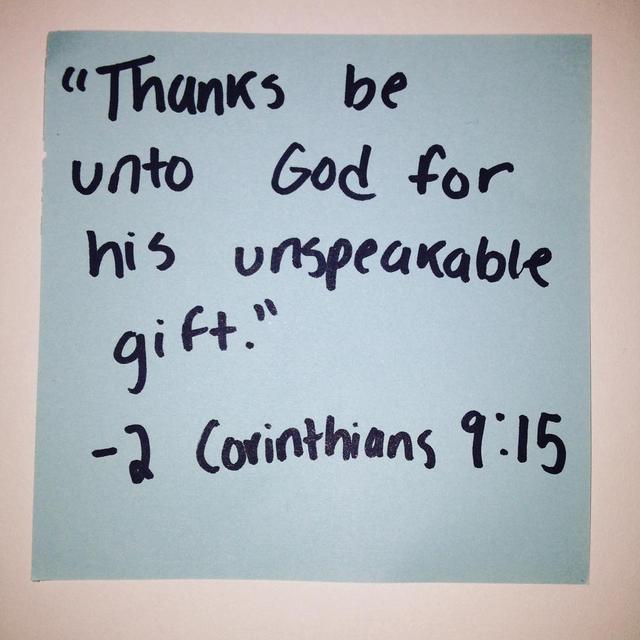 “Thanks be
unto God for
his unspeakable
gift.”
-2 Corinthians 9:15